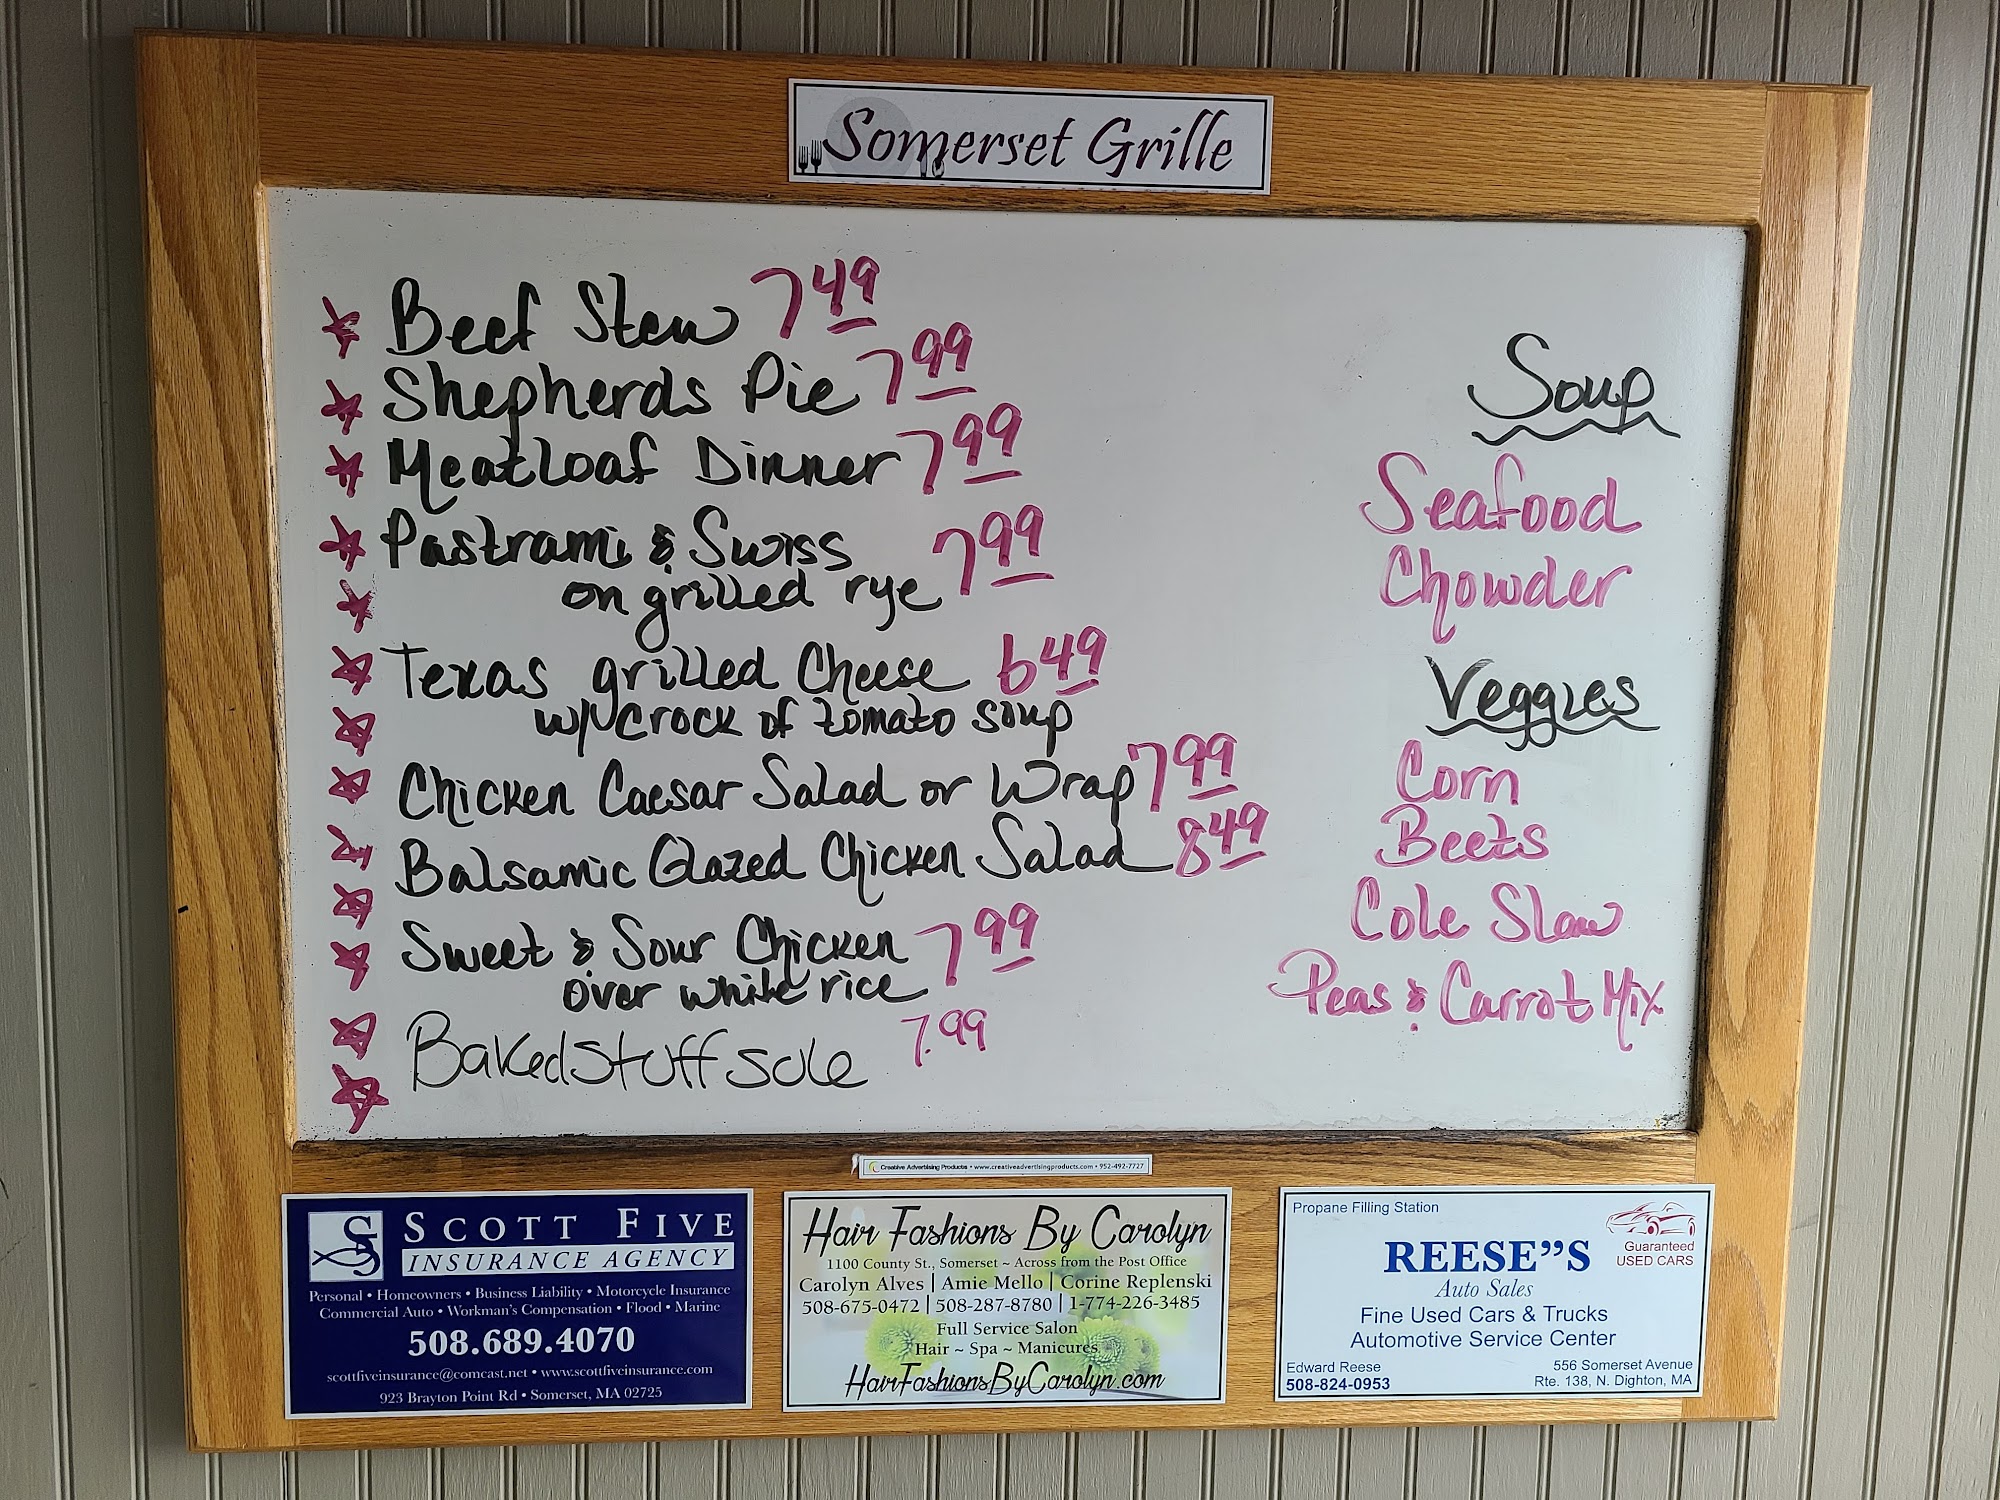 Somerset Grille
Beef Stew 7 49
Shepherds Pie 7 99
Meatloaf Dinner 7 99
Pastrami & Swiss 7 99
on grilled rye
Texas grilled Cheese 6 49
w/ crock of tomato soup
Chicken Caesar Salad or Wrap 7 99
Balsamic Glazed Chicken Salad 8 49
Sweet & Sour Chicken 7 99
over white rice
Baked stuff sole 7.99
Soup
Seafood
Chowder
Veggies
Corn
Beets
Cole Slaw
Peas & Carrot Mix
Creative Advertising Products • www.creativeadvertisingproducts.com • 952-492-7727
SCOTT FIVE
INSURANCE AGENCY
Personal • Homeowners • Business Liability • Motorcycle Insurance
Commercial Auto • Workman's Compensation • Flood • Marine
508.689.4070
scottfiveinsurance@comcast.net • www.scottfiveinsurance.com
923 Brayton Point Rd • Somerset, MA 02725
Hair Fashions By Carolyn
1100 County St., Somerset ~ Across from the Post Office
Carolyn Alves | Amie Mello | Corine Replenski
508-675-0472 | 508-287-8780 | 1-774-226-3485
Full Service Salon
Hair ~ Spa ~ Manicures
HairFashionsByCarolyn.com
Propane Filling Station
Guaranteed
USED CARS
REESE"S
Auto Sales
Fine Used Cars & Trucks
Automotive Service Center
Edward Reese
508-824-0953
556 Somerset Avenue
Rte. 138, N. Dighton, MA